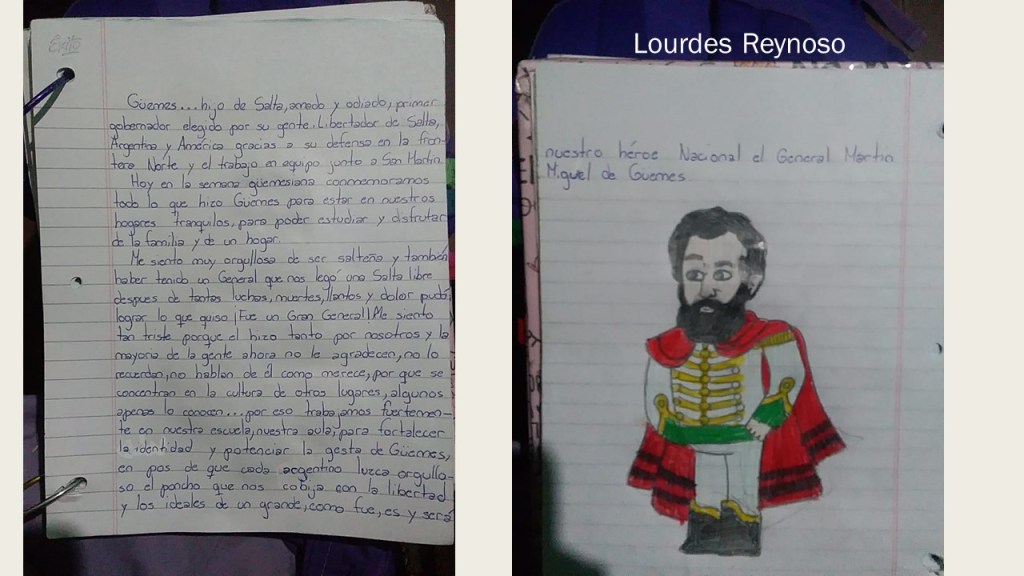 Éxito
Güemes...hijo de Salta, amado y odiado, primer
gobernador elegido por su gente. Libertador de Salta,
Argentina y América gracias a su defensa en la fron-
tera Norte y el trabajo en equipo junto a San Martín.
Hoy en la semana güemesiana conmemoramos
todo lo que hizo Güemes para estar en nuestros
hogares tranquilos, para poder estudiar y disfrutar
de la familia y de un hogar.
Me siento muy orgullosa de ser salteña y también
haber tenido un General que nos legó una Salta libre
despues de tantas luchas, muertes, llantos y dolor pudo
lograr lo que quiso ¡Fue un Gran General! Me siento
tan triste porque el hizo tanto por nosotros y la
mayoría de la gente ahora no le agradecen, no lo
recuerdan, no hablan de él como merece, por que se
concentran en la cultura de otros lugares, algunos
apenas lo conocen...por eso trabajamos fuertemen-
te en nuestra escuela, nuestra aula, para fortalecer
la identidad y potenciar la gesta de Güemes,
en pos de que cada argentino luzca orgullo-
so el poncho que nos cobija con la libertad
y los ideales de un grande, como fue, es y será
Lourdes Reynoso
nuestro héroe Nacional el General Martín
Miguel de Guemes